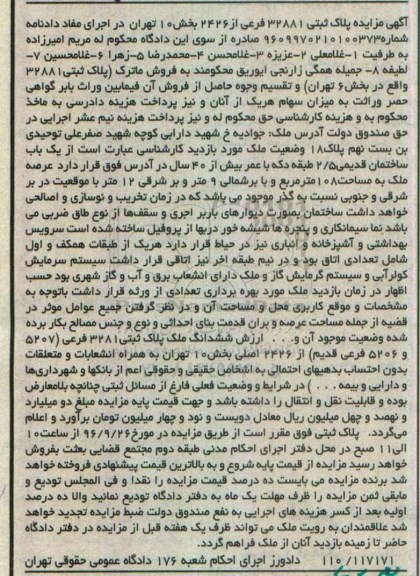 آگهی مزایده پلاک ثبتی ۳۲۸۸۱ فرعی از ۲۴۲۶ بخش۱۰ تهران در اجرای مفاد دادنامه
شماره۹۶۰۹۹۷۰۲۱۰۱۰۰۳۷۳ صادره از سوی این دادگاه محکوم له مریم امیرزاده
به طرفیت ۱-غلامعلی ۲-عزیزه ۳-غلامحسن ۴-محمدرضا ۵-زهرا ۶-غلامحسین ۷-
لطیفه ۸- جمیله همگی زارنجی ایوریق محکومند به فروش ماترک (پلاک ثبتی۳۲۸۸۱
واقع در بخش۶ تهران) و تقسیم وجوه حاصل از فروش آن فیمابین وراث بابر گواهی
حصر وراثت به میزان سهام هریک از آنان و نیز پرداخت هزینه دادرسی به ماخذ
محکوم به و هزینه کارشناسی حق محکوم له و نیز پرداخت هزینه نیم عشر اجرایی در
حق صندوق دولت آدرس ملک: جوادیه خ شهید دارابی کوچه شهید صفرعلی توحیدی
بن بست نهم پلاک۱۸ وضعیت ملک مورد بازدید کارشناسی عبارت است از یک باب
ساختمان قدیمی۲/۵ طبقه دکه با عمر بیش از ۴۰ سال در آدرس فوق قرار دارد عرصه
ملک به مساحت۱۰۸مترمربع و با برشمالی ۹ متر و بر شرقی ۱۲ متر با موقعیت در بر
شرقی و جنوبی نسبت به گذر موجود می باشد که در زمان تخریب و نوسازی و اصالحی
خواهد داشت ساختمان بصورت دیوارهای باربر اجری و سقفها از نوع طاق ضربی می
باشد نما سیمانکاری و پنجره ها شیشه خور دربها از پروفیل ساخته شده است سرویس
بهداشتی و آشپزخانه و انباری نیز در حیاط قرار دارد هریک از طبقات همکف و اول
شامل تعدادی اتاق بود و در نیم طبقه اخر نیز اتاقی قرار داشت سیستم سرمایش
کولرآبی و سیستم گرمایش گاز و ملک دارای انشعاب برق و آب و گاز شهری بود حسب
اظهار در زمان بازدید ملک مورد بهره برداری تعدادی از ورثه قرار داشت باتوجه به
مشخصات و موقع کاربری محل و مساحت آن و در نظر گرفتن جمیع عوامل موثر در
قضیه از جمله مساحت عرصه و بران قدمت بنای احداثی و نوع و جنس مصالح بکار برده
شده وضعیت موجود آن و. . . ارزش ششدانگ ملک پلاک ثبتی۳۲۸۱ فرعی (۵۲۰۷
و ۵۲۰۶ فرعی قدیم) از ۲۴۲۶ اصلی بخش۱۰ تهران به همراه انشعابات و متعلقات
بدون احتساب بدهیهای احتمالی به اشخاص حقیقی و حقوقی اعم از بانکها و شهرداریها
و دارایی و بیمه. . . ) در شرایط و وضعیت فعلی فارغ از مسائل ثبتی چنانچه بلامعارض
بوده و قابلیت نقل و انتقال را داشته باشد و جهت قیمت پایه مزایده مبلغ دو میلیارد
و نهصد و چهل میلیون ریال معادل دویست و نود و چهار میلیون تومان برآورد و اعلام
می‌گردد. پلاک ثبتی فوق مقرر است از طریق مزایده در مورخ۹۶/۹/۲۶ از ساعت۱۰
الی۱۱ صبح در محل دفتر اجرای احکام مدنی طبقه دوم مجتمع قضایی بعثت بفروش
خواهد رسید مزایده از قیمت پایه شروع و به بالاترین قیمت پیشنهادی فروخته خواهد
شد برنده مزایده می بایست ده درصد قیمت مزایده را نقدا و فی المجلس تودیع و
مابقی ثمن مزایده را ظرف مهلت یک ماه به دفتر دادگاه تودیع نمائید والا ده درصد
اولیه بعد از کسر هزینه های اجرایی به نفع صندوق دولت ضبط مزایده تجدید خواهد
شد علاقمندان به رویت ملک می تواند ظرف یک هفته قبل از مزایده در دفتر دادگاه
حاضر تا زمینه بازدید آنان از ملک فراهم گردد.
۱۱۰/۱۱۷۱۷۱ دادورز اجرای احکام شعبه ۱۷۶ دادگاه عمومی حقوقی تهران